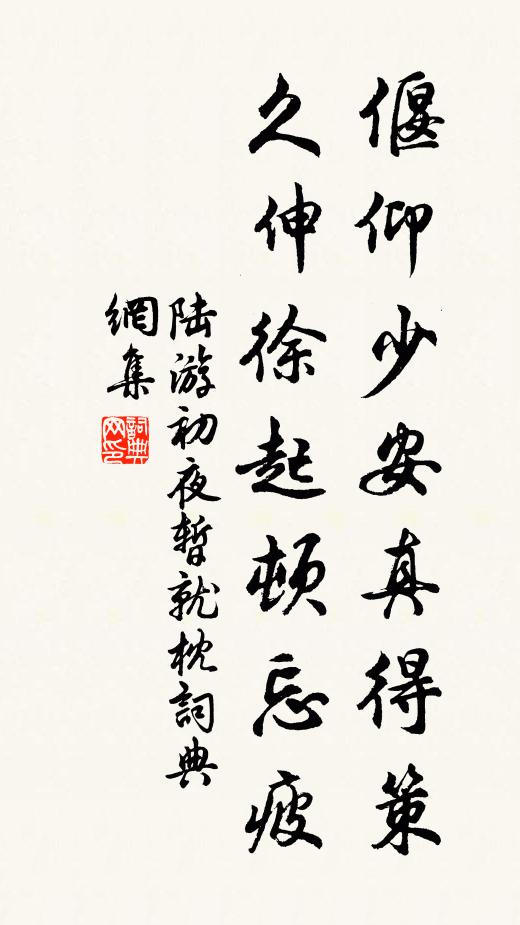 偃仰少安真得策
久伸徐起頓忘疲
陆游初夜暫就枕詞典
網集
詞典
网印